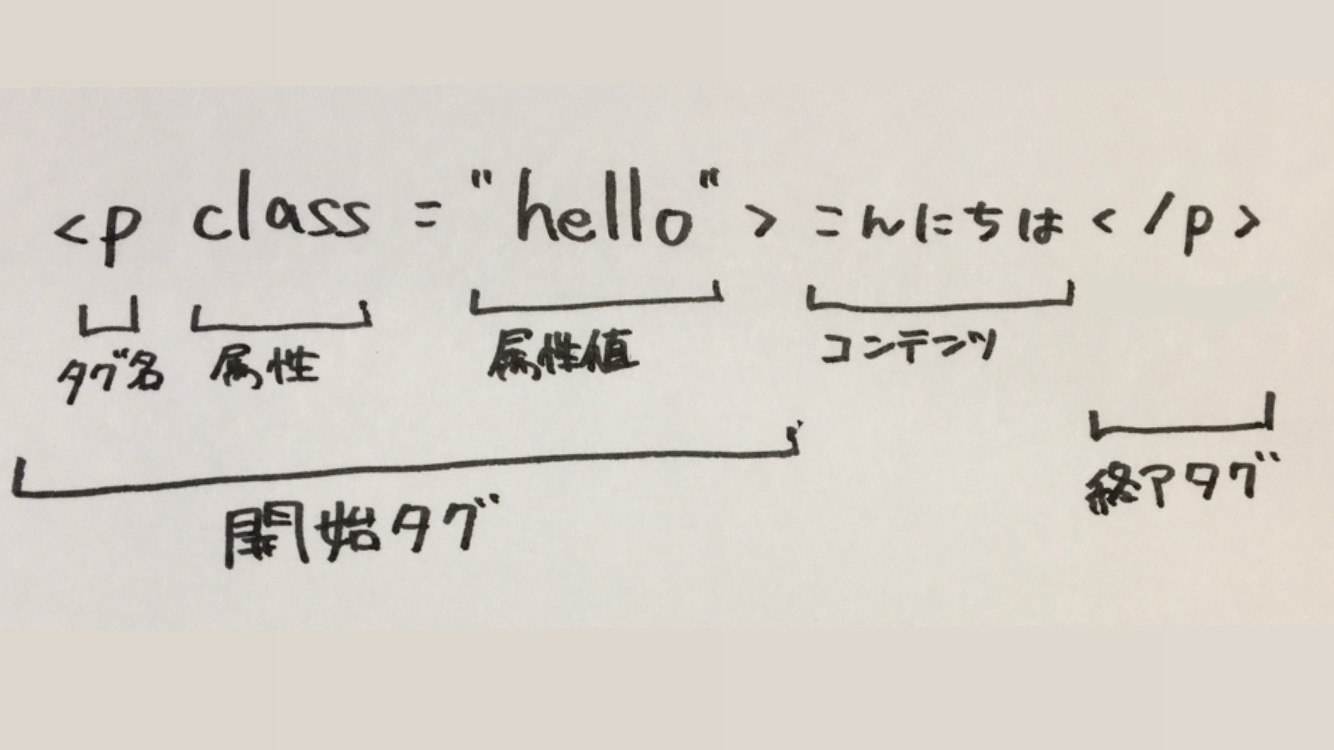 <p class="hello">こんにちは</p>
タグ名 属性 属性値 コンテンツ
開始タグ 終了タグ